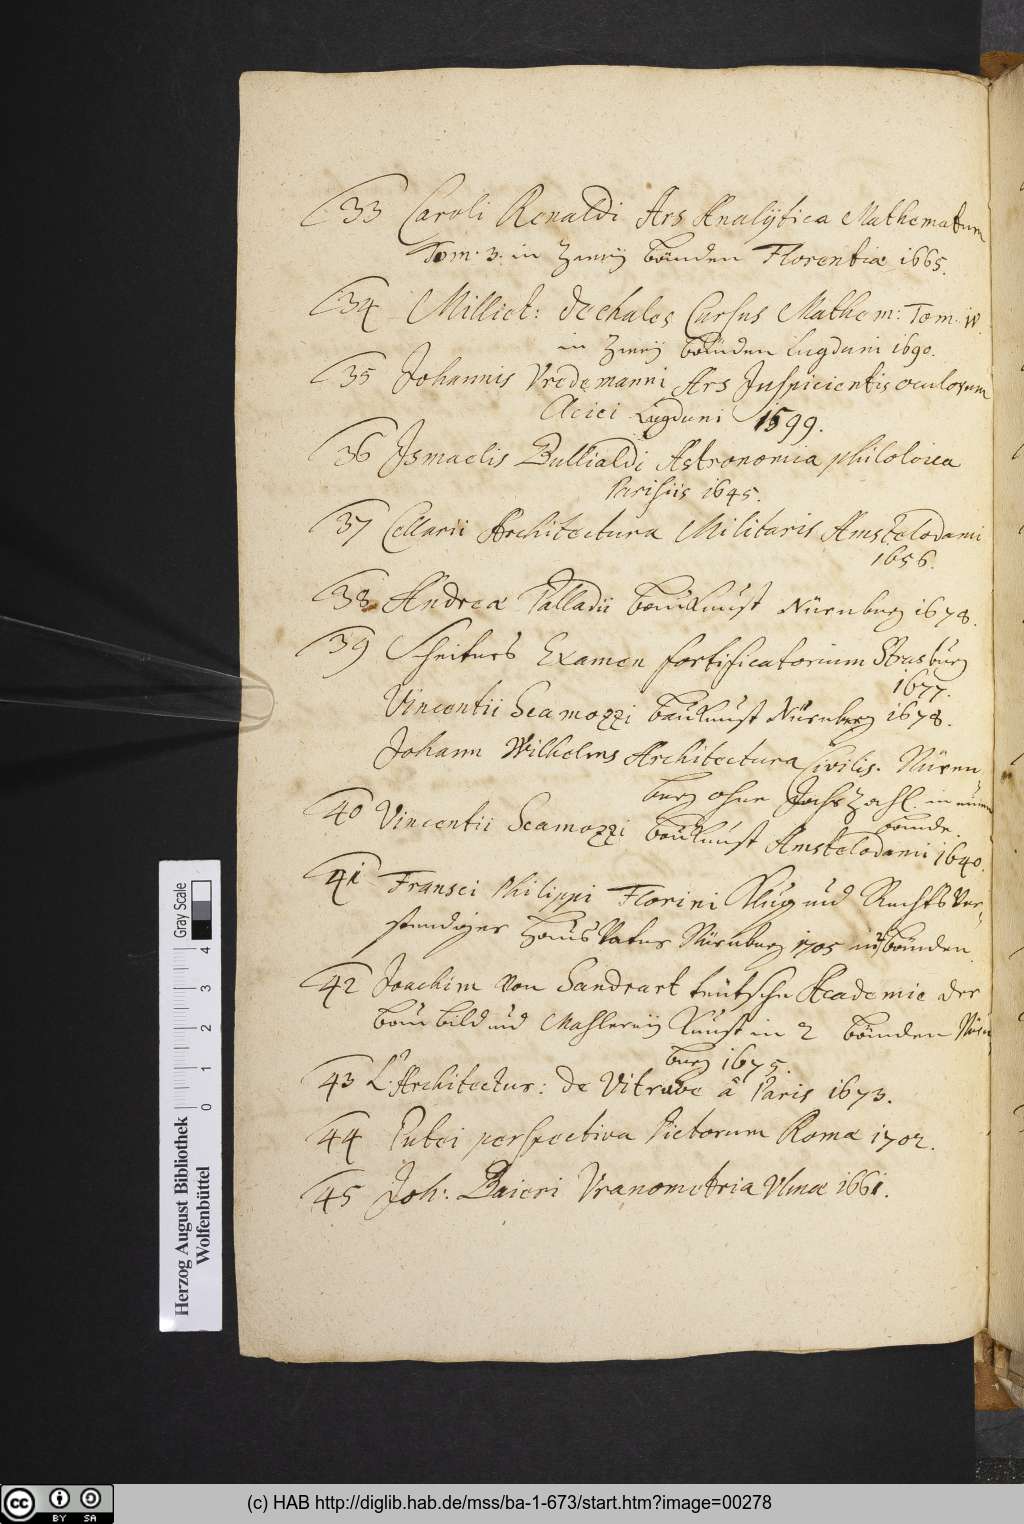 33 Caroli Renaldi Ars Analÿtica Mathematum
Tom: 3. in Zweÿ bänden Florentiæ 1665.
34 Milliet: dechales Cursus Mathem: Tom. IV.
in Zweÿ bänden Lugduni 1690.
35 Johannis Vredemanni Ars Inspicientis oculorum
Aciei Lugduni 1599.
36 Ismaelis Bullialdi Astronomia philolaica
Parisiis 1645.
37 Cellarii Architectura Militaris Amstelodami
1656.
38 Andreæ Palladii Baukunst Nürnberg 1678.
39 Scheiters Examen fortificatorium Strasburg
1677.
Vincentii Scamozzi Baukunst Nürnberg 1678.
Johann Wilhelms Architectura Civilis. Nüren
berg ohne Jahr Zahl. in einem
bande.
40 Vincentii Scamozzi Baukunst Amstelodamii 1640.
41 Fransci Philippi Florini Klug und Rechts Ver-
standiger Haus Vater Nürnberg 1705 in 2 bänden.
42 Joachim von Sandrart teütsche Academie der
Bau bild und Mahlereÿ Kunst in 2 bänden Nürn
berg 1675.
43 L'Architectur: de Vitrube â Paris 1673.
44 Putei perspectiva Pictorum Romæ 1702.
45 Joh: Baieri Vranometria Vlmæ 1661.
Gray Scale
0 1 2 3 4
Herzog August Bibliothek
Wolfenbüttel
cc BY SA
(c) HAB http://diglib.hab.de/mss/ba-1-673/start.htm?image=00278